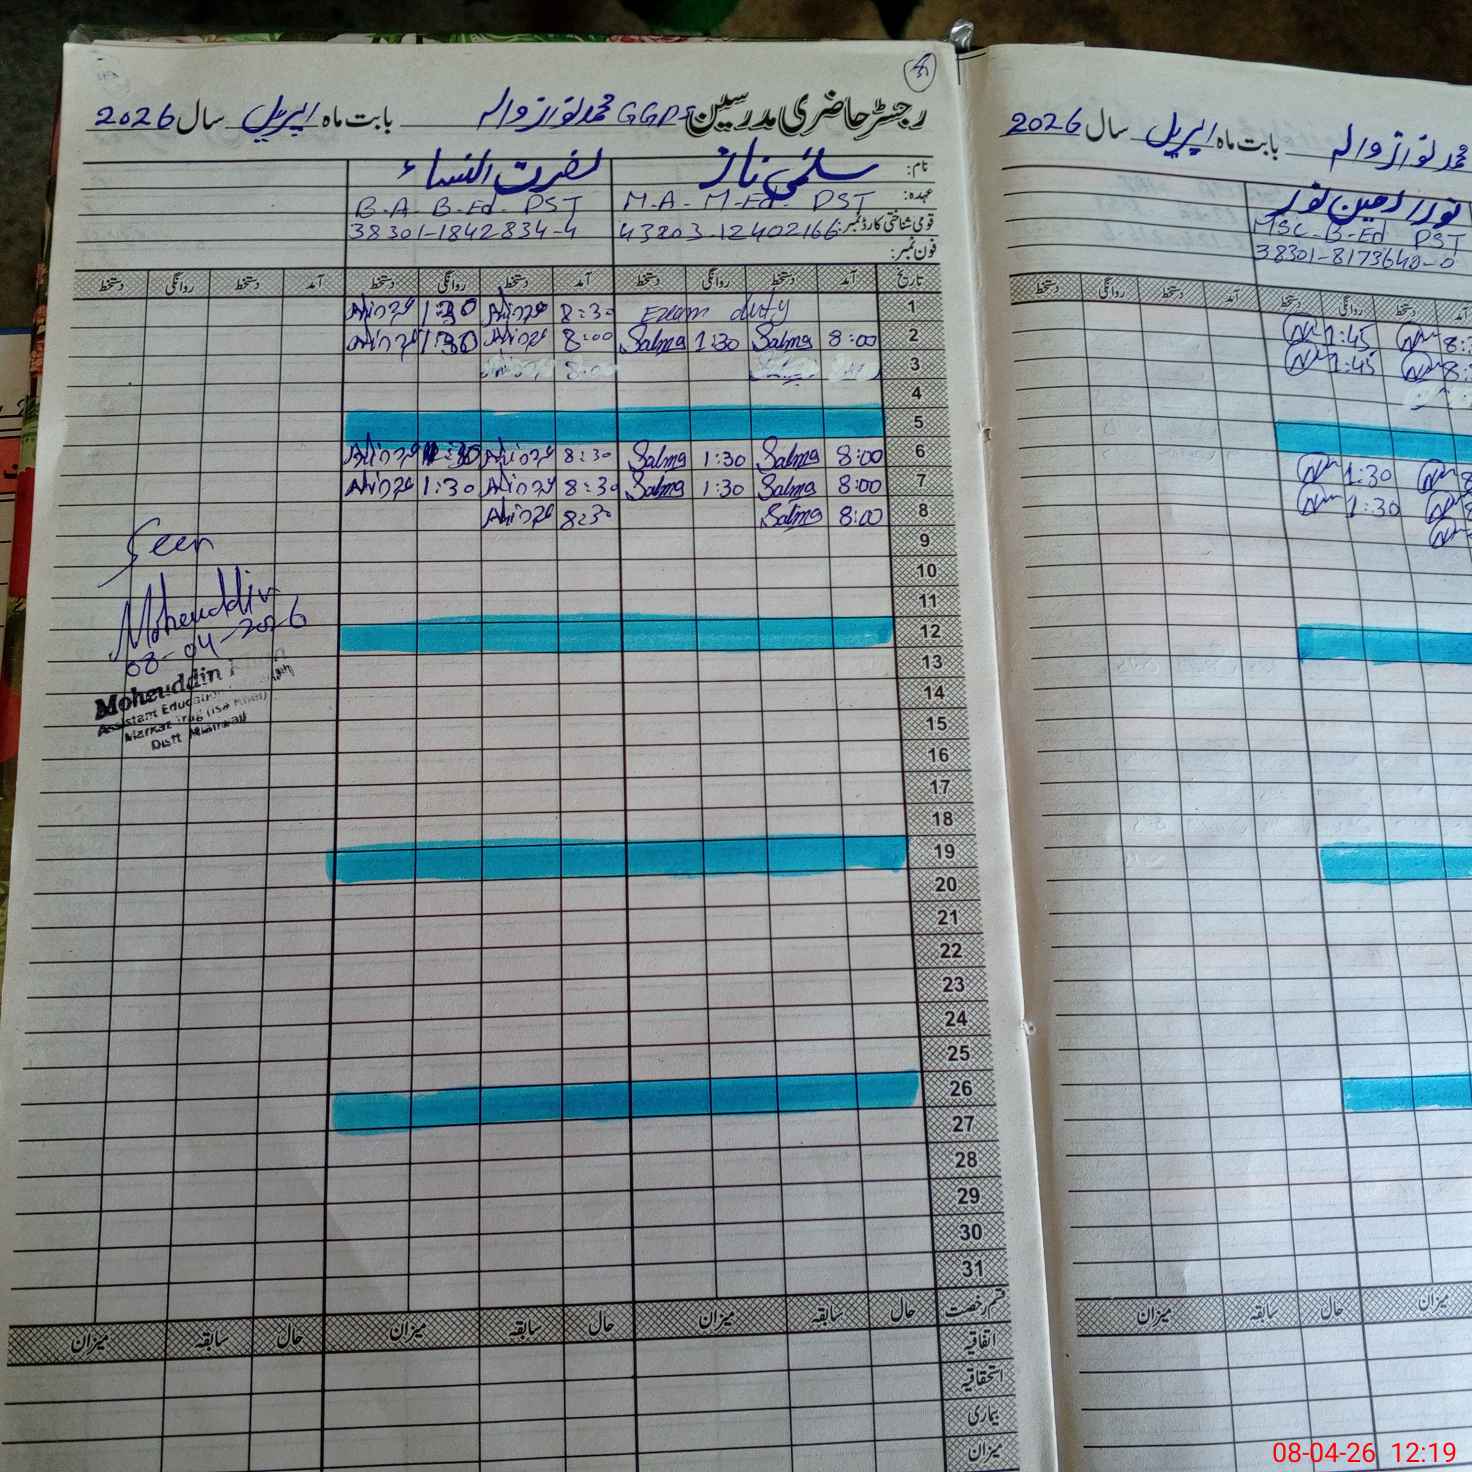 رجسٹر حاضری مدرسین GGPS محمد نواز والہ بابت ماہ اپریل سال 2026
نام: سلمیٰ ناز نصرت النساء
عہدہ: M.A - M-Ed - PST B.A - B-Ed - PST
قومی شناختی کارڈ نمبر: 38301-1842834-4
فون نمبر:
تاریخ آمد دستخط روانگی دستخط آمد دستخط روانگی دستخط آمد دستخط روانگی دستخط
1 Exam duty 8:30 1:30
2 8:00 Salma 1:30 Salma 8:00 1:30
3
4
5
6 8:00 Salma 1:30 Salma 8:30 1:30
7 8:00 Salma 1:30 Salma 8:30 1:30
8 8:00 Salma 8:30
9
10
11
12
13
14
15
16
17
18
19
20
21
22
23
24
25
26
27
28
29
30
31
قسم رخصت حال سابقہ میزان حال سابقہ میزان حال سابقہ میزان
اتفاقیہ
استحقاقیہ
بیماری
میزان
Seen
Moheuddin
08-04-2026
Moheuddin
Assistant
Markaz
Distt Mianwali
محمد نواز والہ بابت ماہ اپریل سال 2026
MSc - B-Ed PST
38301-8173640-0
آمد دستخط روانگی دستخط آمد دستخط روانگی دستخط
1:45
1:45
1:30
1:30
میزان حال سابقہ میزان
08-04-26 12:19